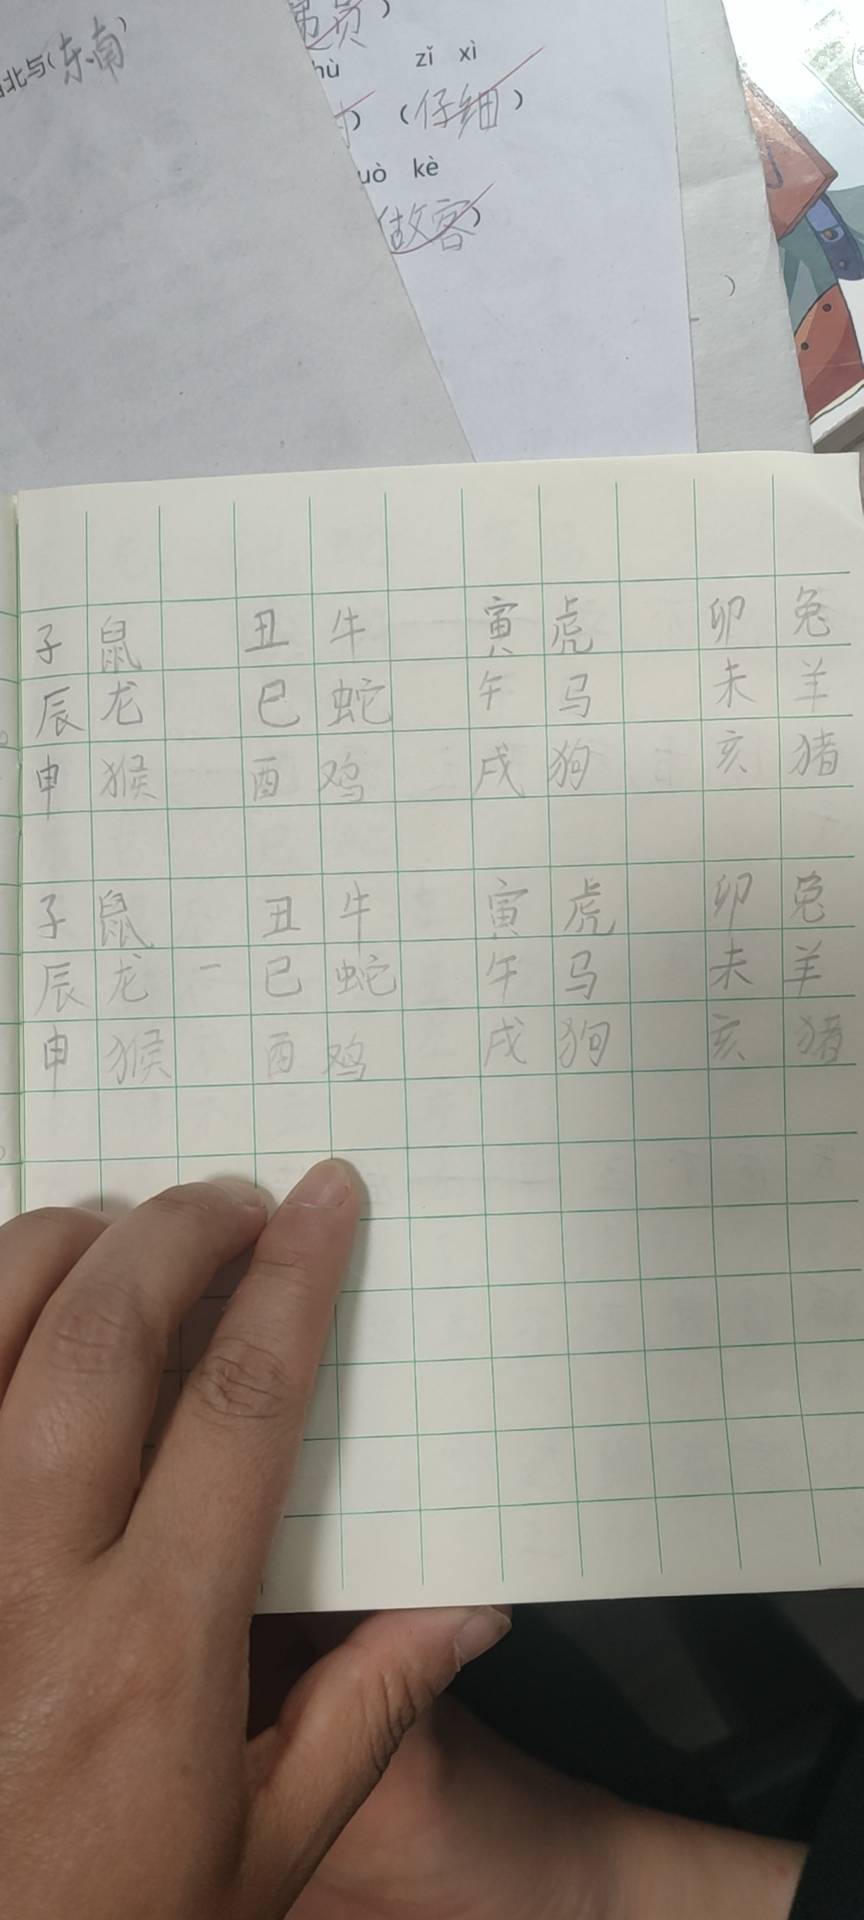 北与(东南)
hù zǐ xì
) (仔细)
uò kè
做客)
)
子鼠 丑牛 寅虎 卯兔
辰龙 巳蛇 午马 未羊
申猴 酉鸡 戌狗 亥猪
子鼠 丑牛 寅虎 卯兔
辰龙 一 巳蛇 午马 未羊
申猴 酉鸡 戌狗 亥猪